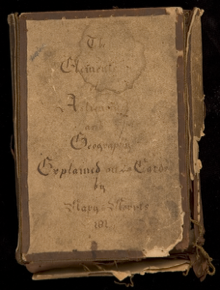 The
Elements
of
Astronomy
and
Geography
Explained on 40 Cards
by
181